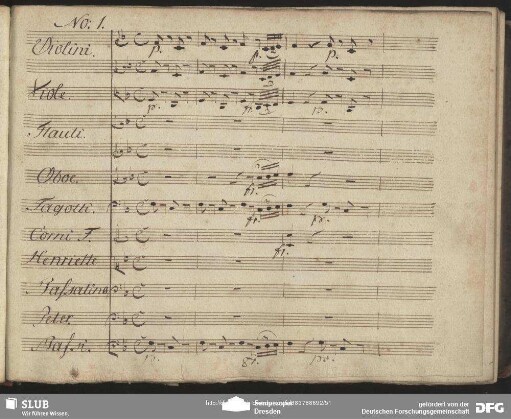 No: 1.
Violini.
Viole.
Flauti.
Oboe.
Fagotti.
Corni F.
Henriette
Peter
Bassi.
SLUB
Wir führen Wissen.
Dresden
gefördert von der
Deutschen Forschungsgemeinschaft
DFG